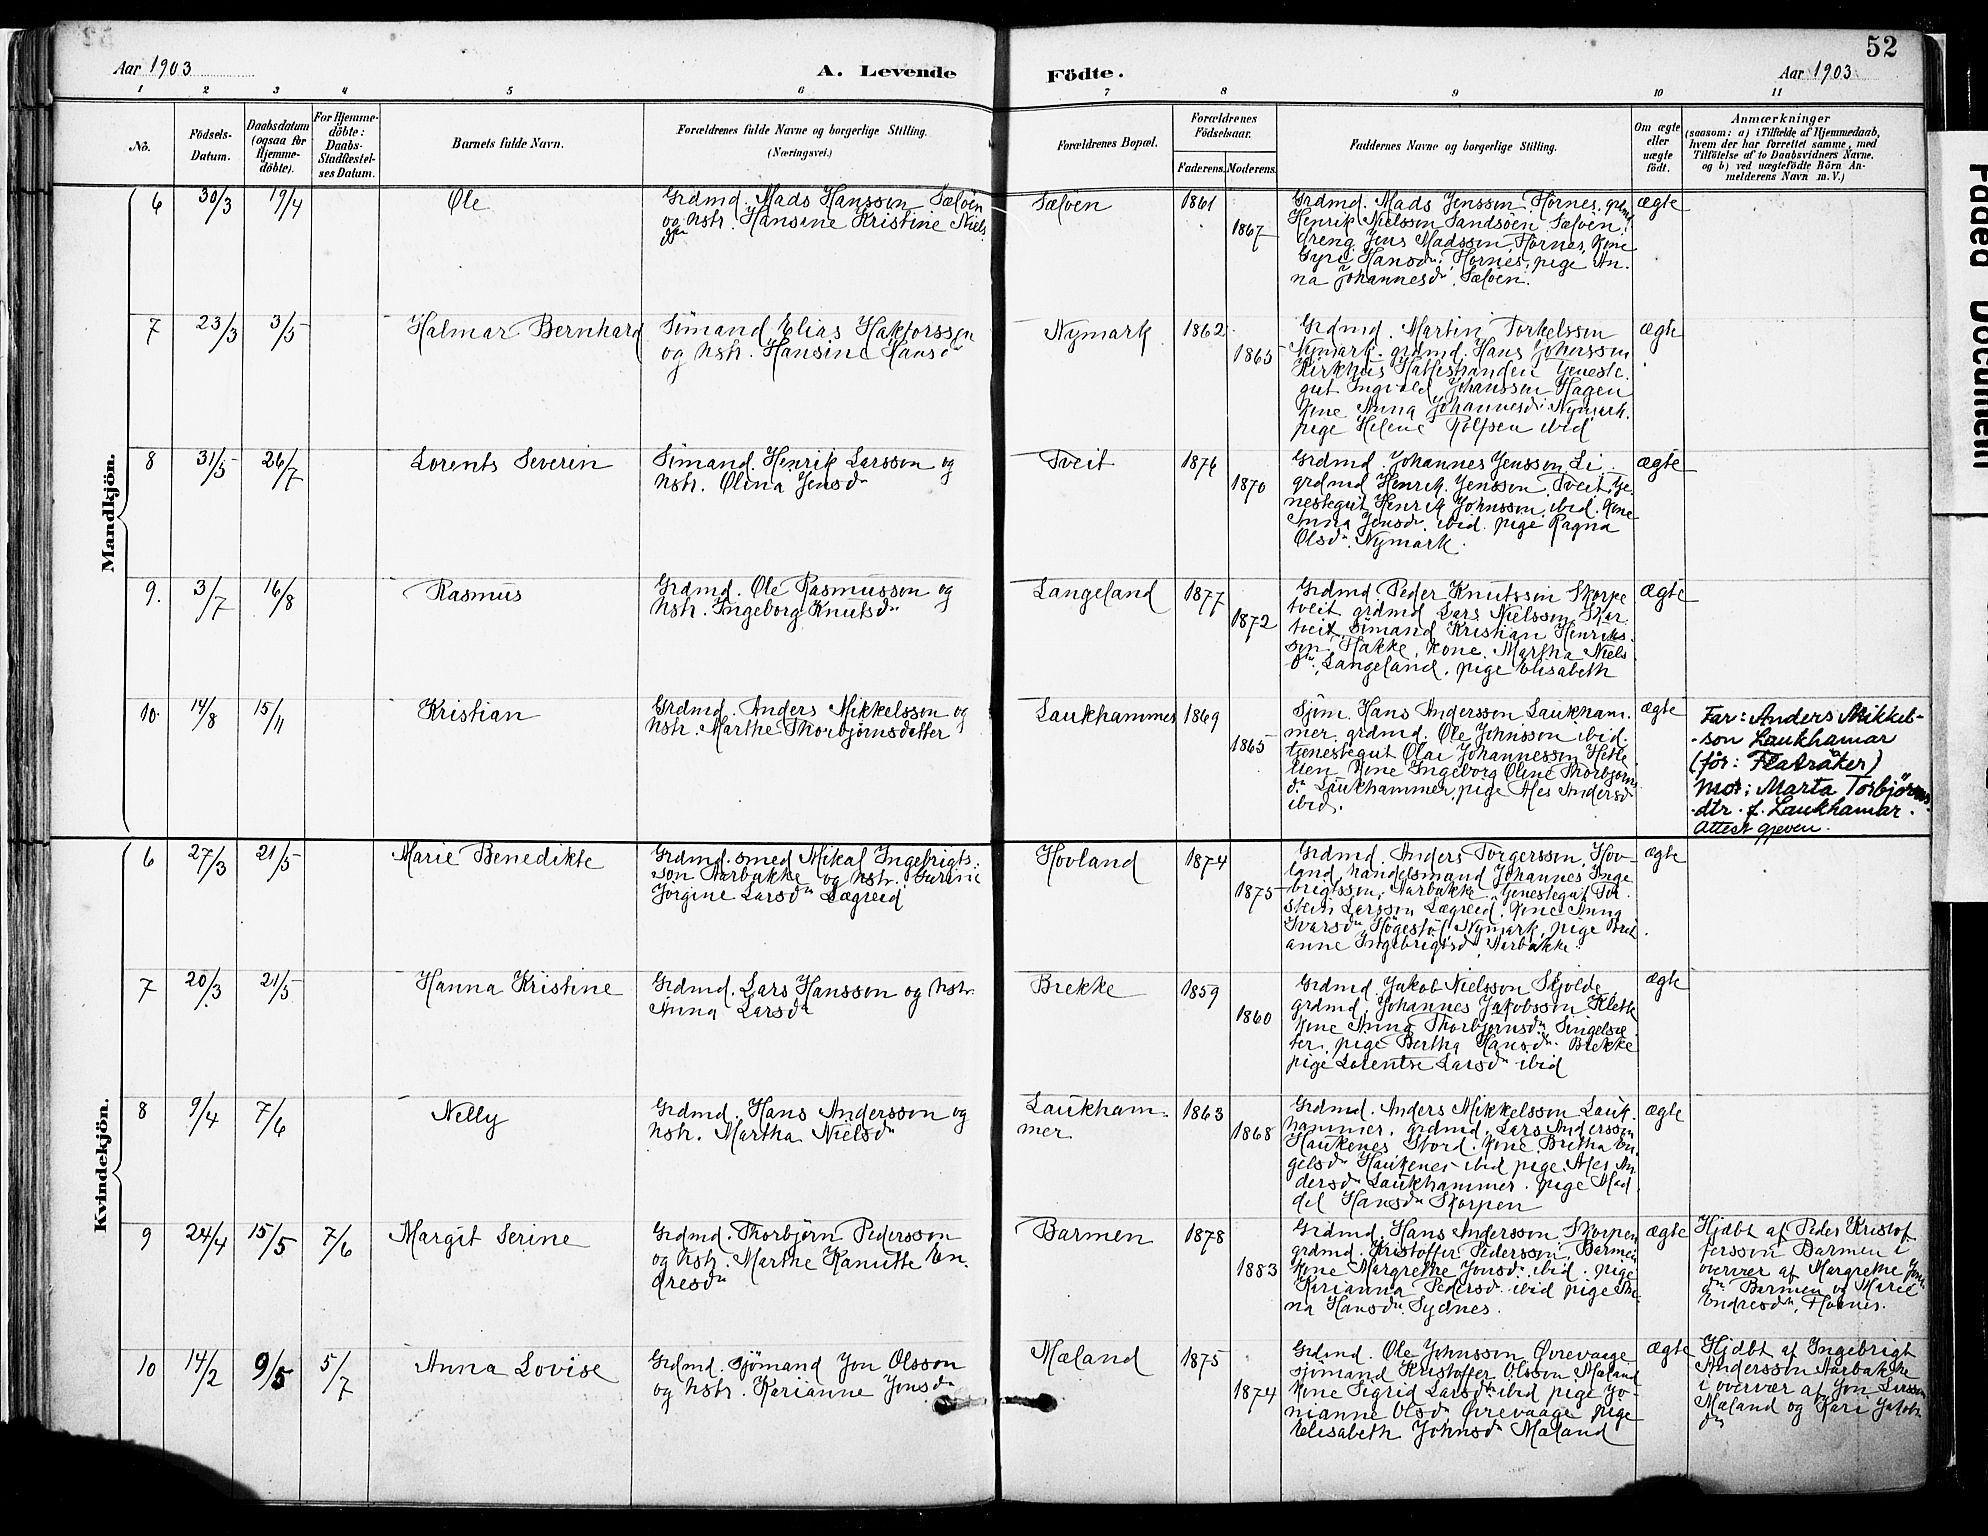 52
Aar 1903
A. Levende
Födte.
Aar 1903
1 2 3 4 5 6 7 8 9 10 11
No.
Födsels-
Datum.
Daabsdatum
(ogsaa for
Hjemme-
döbte).
For Hjemme-
döbte:
Daabs-
Stadfæstel-
ses Datum.
Barnets fulde Navn.
Forældrenes fulde Navne og borgerlige Stilling.
(Næringsvei.)
Forældrenes Bopæl.
Forældrenes
Födselsaar.
Faderens.
Moderens.
Faddernes Navne og borgerlige Stilling.
Om ægte
eller
uægte
födt.
Anmærkninger
(saasom: a) i Tilfælde af Hjemmedaab,
hvem der har forrettet samme, med
Tilföielse af to Daabsvidners Navne.
og b) ved uægtefödte Börn An-
melderens Navn m. V.)
Mandkjön.
6 30/3 19/4
Ole
Grdmd. Mads Hansson Sæløen
og hstr. Hansine Kristine Niels
dtr
Sæløen
1861
1867
Grdmd. Mads Jensson, Hornes, grdmd
Henrik Nielsson Sandsøen Sæløen,
dreng Jens Madsson, Hornes, kone
Gyri Hansdtr, Hornes, pige An-
na Johannesdtr, Sæløen.
ægte
7 23/3 3/5
Halmar Bernhard
Sømand Elias Haktorsson
og hstr. Hansine Hansdtr
Nymark
1862
1865
Grdmd. Martin Torkelsson
Nymark. grdmd. Hans Johnsson
Kirkhus Halsestranden tjeneste-
gut Ingvald Johansson Hagen
kone Anna Johannesdtr Nymark.
pige Helene Rolfsen ibid
ægte
8 31/5 26/7
Lorents Severin
Sømand. Henrik Larsson og
hstr. Olina Jensdtr
Tveit
1876
1870
Grdmd. Johannes Jensson, Li
grdmd Henrik Jensson, Tveit, tje-
nestegut Henrik Johnsson, ibid. kone
Anna Jensdtr. ibid. pige Ragna
Olsdtr. Nymark.
ægte
9. 3/7 16/8
Rasmus
Grdmd. Ole Rasmusson og
hstr. Ingeborg Knutsdtr
Langeland
1877
1872
Grdmd. Peder Knutsson Skorpe
tveit grdmd Lars Nielsson Skar
tveit sømand Kristian Henriks-
son, Hakke, kone. Martha Niels
dtr. Langeland, pige Elisabeth
ægte
10. 14/8 15/11
Kristian
Grdmd. Anders Mikkelsson og
hstr. Marthe Thorbjørnsdatter
Laukhammer
1869
1865
Sjøm. Hans Andersson Laukham-
mer, grdmd. Ole Johnsson ibid.
tjenestegut Olai Johannesson
kone Ingeborg Oline Thorbjørns
dtr Laukhammer, pige Ales Andersdtr
ibid.
ægte
Far: Anders Mikkel-
son Laukhamar
(før: Flatråker)
Mor: Marta Torbjörns
dtr. f. Laukhamar.
Attest gjeven.
Kvindekjön.
6 27/3 21/5
Marie Benedikte
Grdmd. smed Mikal Ingebrigts-
son Aarbakke og hstr. Gurine
Jorgine Larsdtr Lægreid
Hovland
1874
1875
Grdmd. Anders Torgersson, Hov-
land, handelsmand Johannes Inge
brigtsson, Aarbakke. tjenestegut Tor-
stein Larsson Lægreid. kone Anna
Ivarsdtr Høgestøl Nymark, pige
anne Ingebrigtsdtr Aarbakke.
ægte
7 20/3 21/5
Hanna Kristine
Grdmd. Lars Hansson og hstr.
Anna Larsdtr
Brekke
1859
1860
Grdmd. Jakob Nielsson Skjolde
grdmd. Johannes Jakobsson Klette
kone Anna Thorbjørnsdtr Singelsæ-
ter. pige Bertha Hansdtr. Brekke
pige Lorentse Larsdtr ibid
ægte
8 9/4 7/6
Nelly
Grdmd. Hans Andersson og
hstr. Martha Nielsdtr
Laukham-
mer
1863
1868
Grdmd. Anders Mikkelsson Lauk-
hammer. grdmd. Lars Andersson
Haukenes Stord. kone Britha En
gelsdtr Haukenes ibid pige. Ales An
dersdtr Laukhammer. pige Mad
del Hansdtr Skorpen
ægte
9 24/4 15/5 7/6
Margit Serine
Grdmd. Thorbjørn Pedersson
og hstr. Marthe Kanutte En-
dresdtr
Barmen
1878
1883
Grdmd. Hans Andersson Skorpen
grdmd. Kristoffer Pedersson, Barmen
kone Margrethe Jonsdtr. ibid. pige
Karianna Pedersdtr. ibid pige
na Hansdtr Sydnes.
ægte
Hjdbt af Peder Kristof
fersson Barmen i
overvær af Margrethe Jons
dtr Barmen og Marie
Endresdtr, Hornes.
10 14/2 9/5 5/7
Anna Lovise
Grdmd. sjömand Jon Olsson
og hstr. Karianne Jonsdtr
Mæland
1875
1874
Grdmd. Ole Johnsson Øvrevaage
sjömand Kristoffer Olsson Mæland
kone Sigrid Larsdtr ibid pige Jo-
nianne Olsdtr Øvrevaage pige
Elisabeth Johnsdtr Mæland
ægte
Hjdbt af Ingebrigt
Andersson Aarbakke
i overvær af Jon Larsson
Mæland og Kari Jakobs
dtr
Faded Document